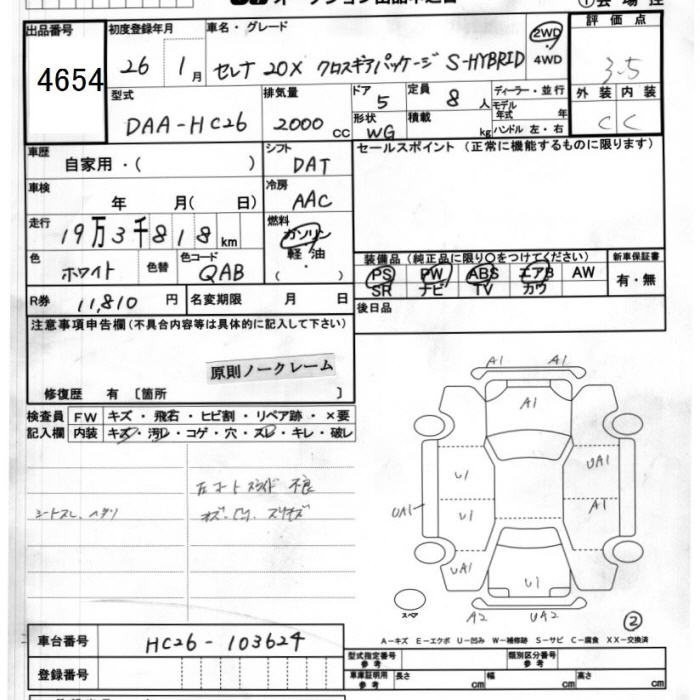 出品番号
4654
初度登録年月
26 1月
車名・グレード
セレナ 20X クロスギアパッケージ S-HYBRID
2WD
4WD
評価点
3.5
外装 内装
C C
型式
DAA-HC26
排気量
2000 cc
ドア
5
形状
WG
定員
8 人
積載
kg
ディーラー・並行
モデル年式 年
ハンドル 左・右
車歴
自家用・( )
シフト
DAT
セールスポイント (正常に機能するものに限ります)
車検
年 月( 日)
冷房
AAC
走行
19万3千818km
燃料
ガソリン
軽油
( )
色
ホワイト
色替
色コード
QAB
装備品 (純正品に限り○をつけてください)
新車保証書
PS PW ABS エアB AW
SR ナビ TV カワ
有・無
R券
11,810 円
名変期限 月 日
後日品
注意事項申告欄 (不具合内容等は具体的に記入して下さい)
原則ノークレーム
修復歴 有 〔箇所 〕
検査員記入欄
FW キズ・飛石・ヒビ割・リペア跡・×要
内装 キズ・汚レ・コゲ・穴・スレ・キレ・破レ
シートスレ、ヘタリ
A1 A1
A1
U1 UA1
UA1 U1 A1
UA1 U1
スペア
A2 UA2
②
A-キズ E-エクボ U-凹み W-補修跡 S-サビ C-腐食 XX-交換済
車台番号
HC26-103624
登録番号
型式指定番号 参考
類別区分番号 参考
車庫証明用 参考
長さ cm
幅 cm
高さ cm